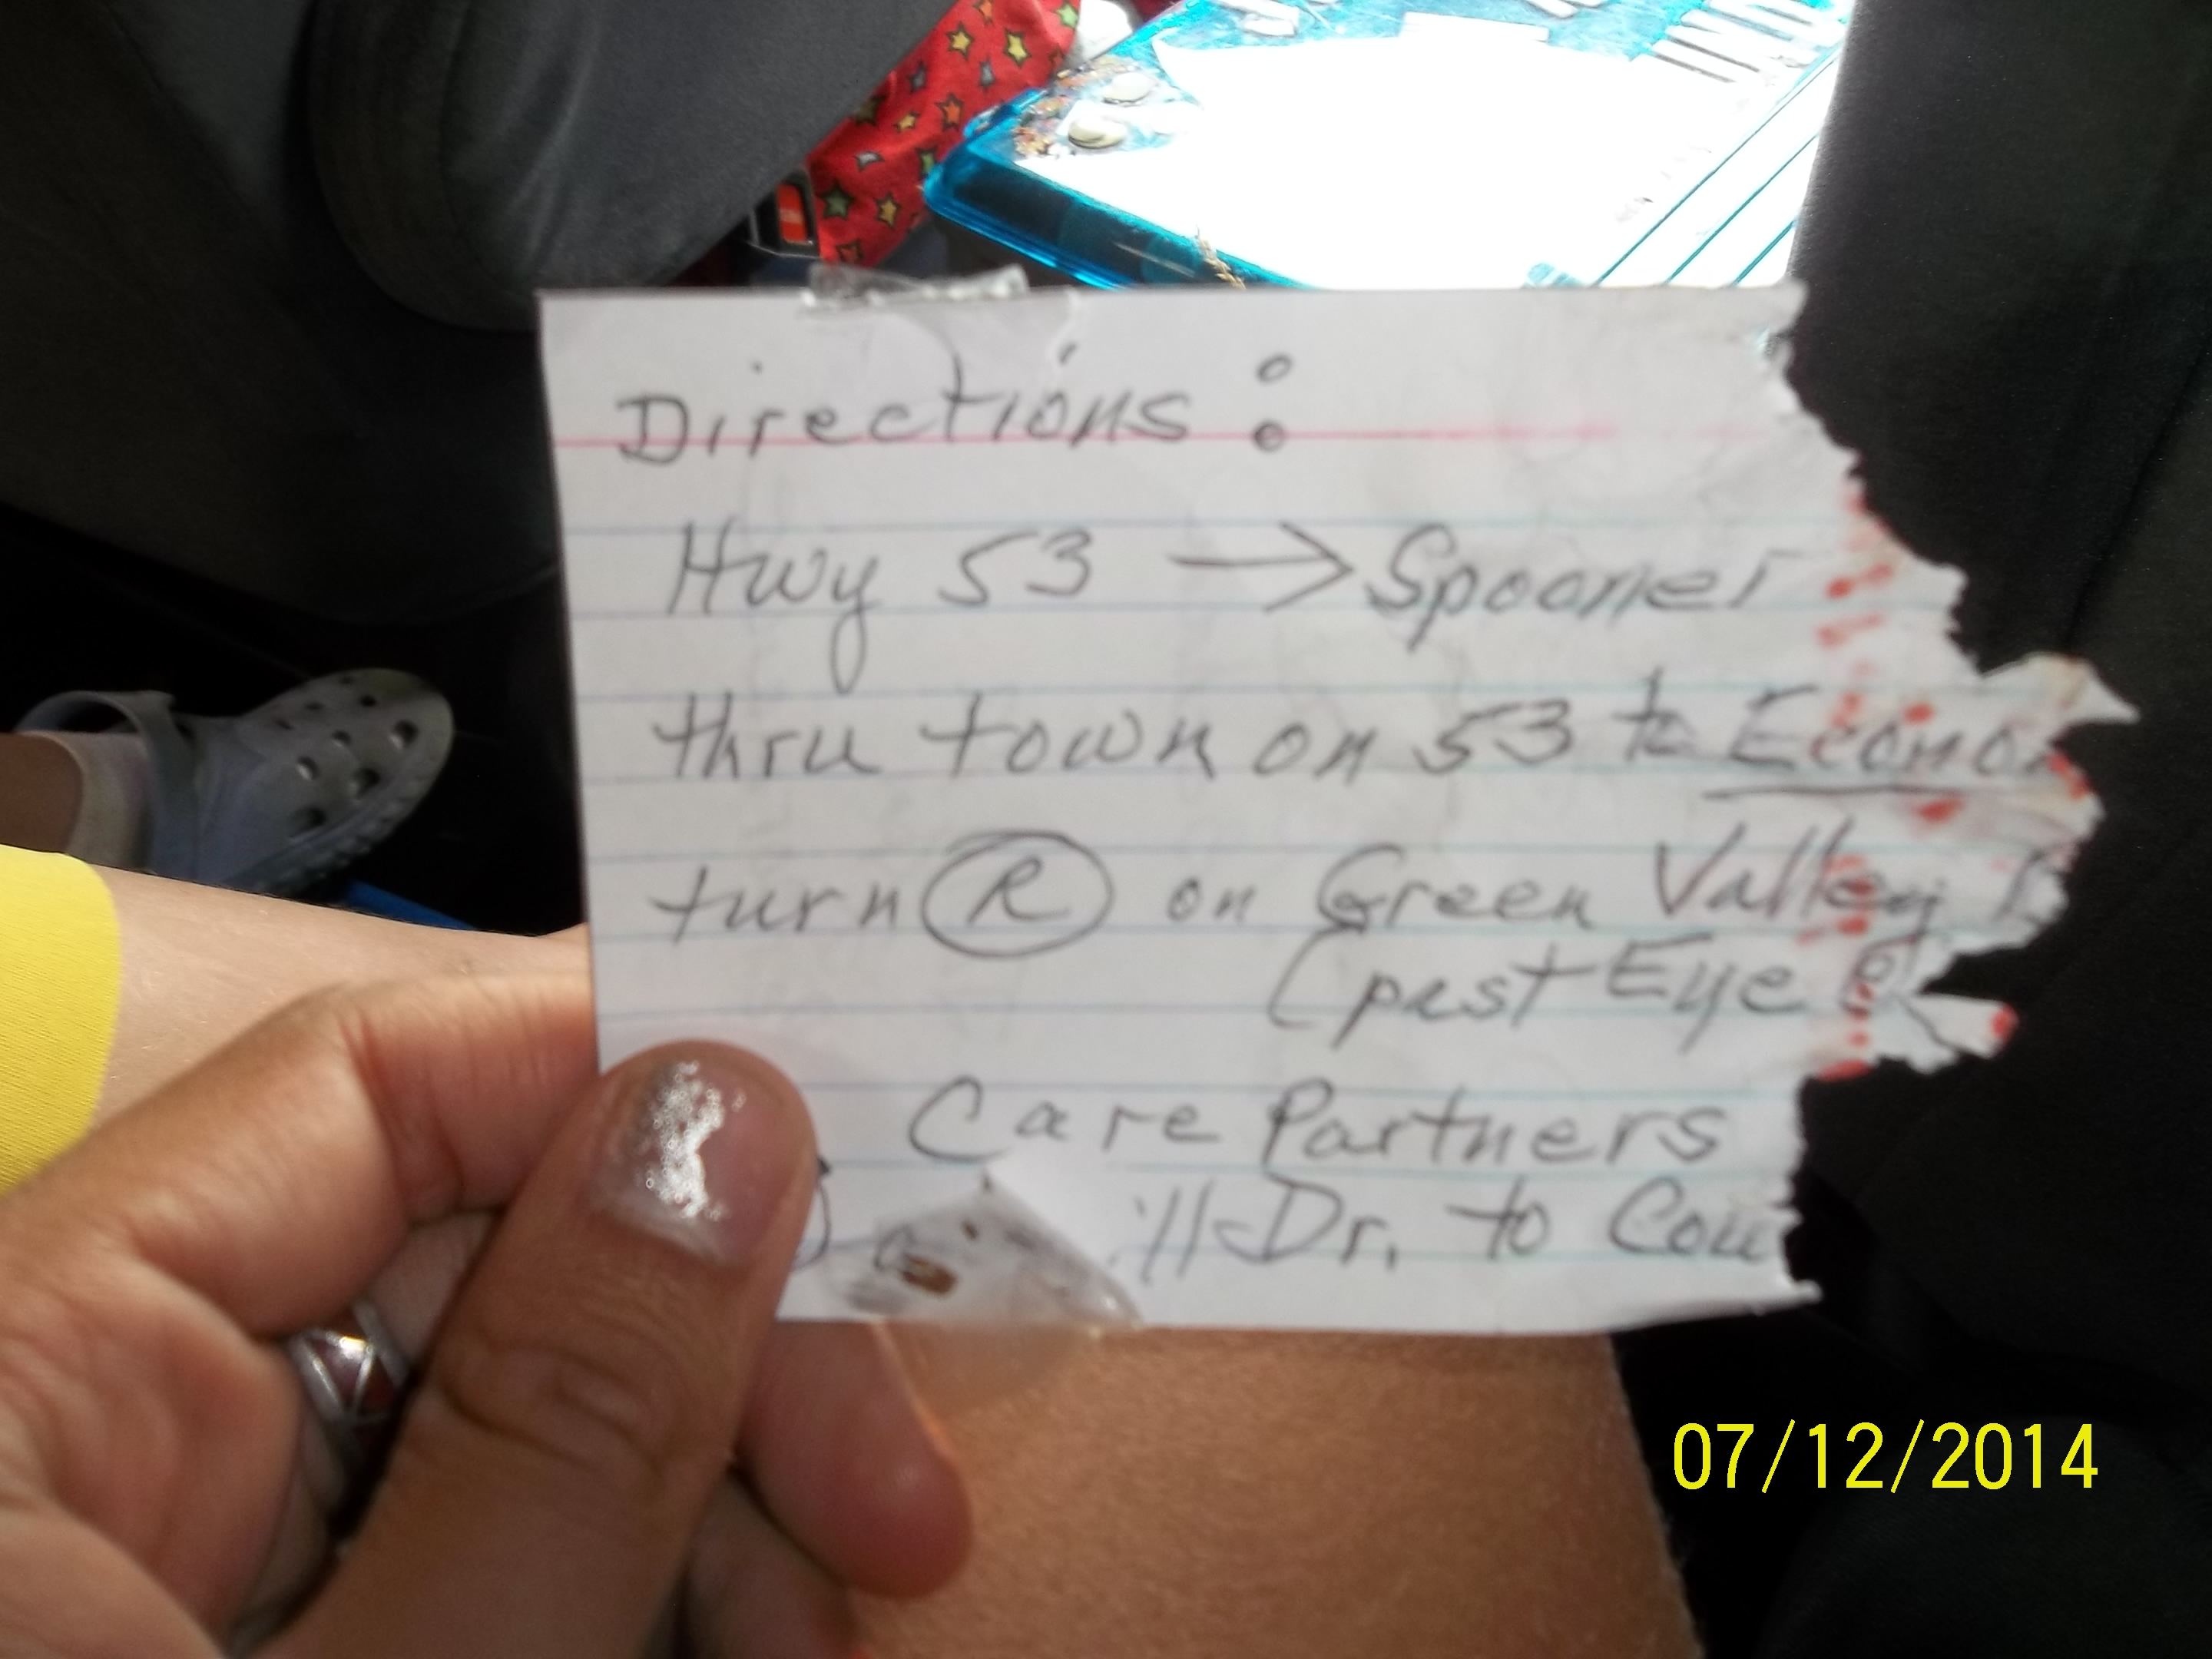 Directions:
Hwy 53 → Spooner
thru town on 53 to Econo
turn R on Green Valley
(past Eye
Care Partners
Dr. to Cou
07/12/2014